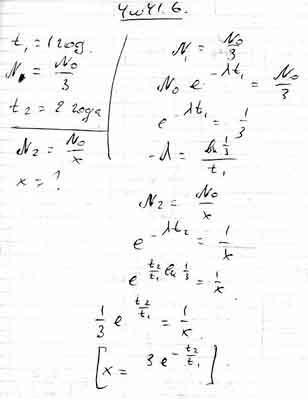 ЧиЧ1.6.
t₁ = 1 год.
N₁ = N₀/3
t₂ = 2 года
N₂ = N₀/x
x = ?
N₁ = N₀/3
N₀ e^(-λt₁) = N₀/3
e^(-λt₁) = 1/3
-λ = (ln 1/3)/t₁
N₂ = N₀/x
e^(-λt₂) = 1/x
e^(t₂/t₁ ln 1/3) = 1/x
1/3 e^(t₂/t₁) = 1/x.
[x = 3 e^(-t₂/t₁)]